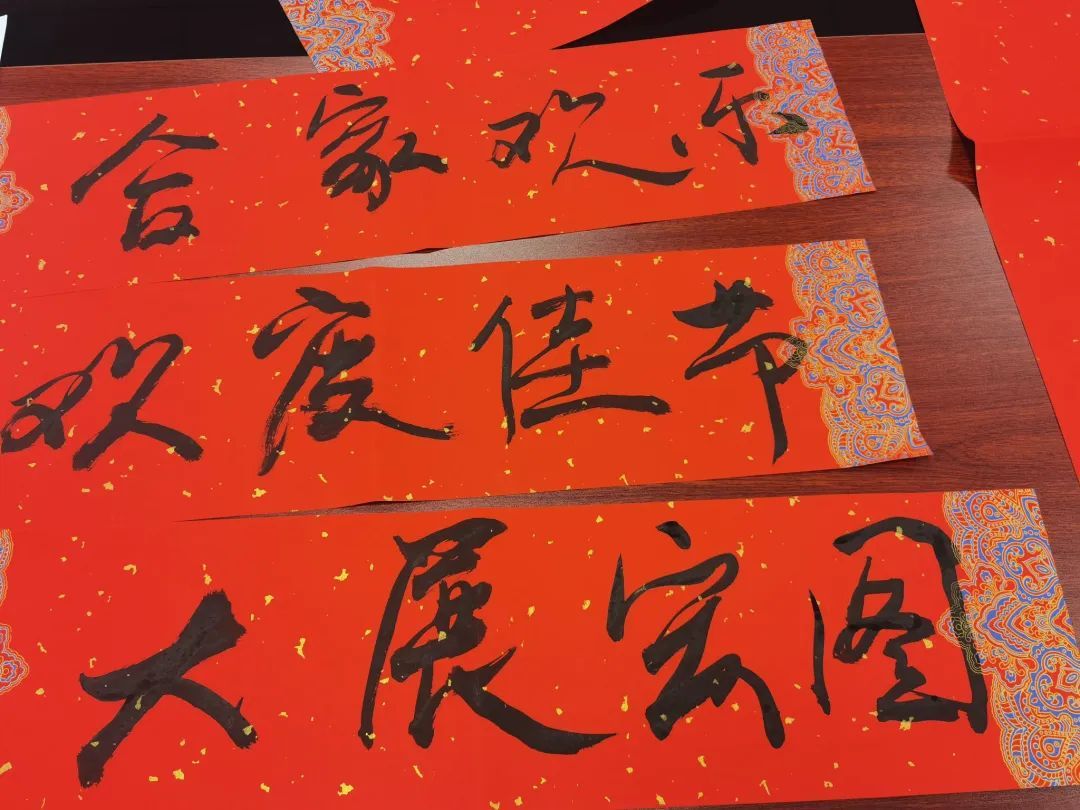 合家欢乐
欢度佳节
大展宏图